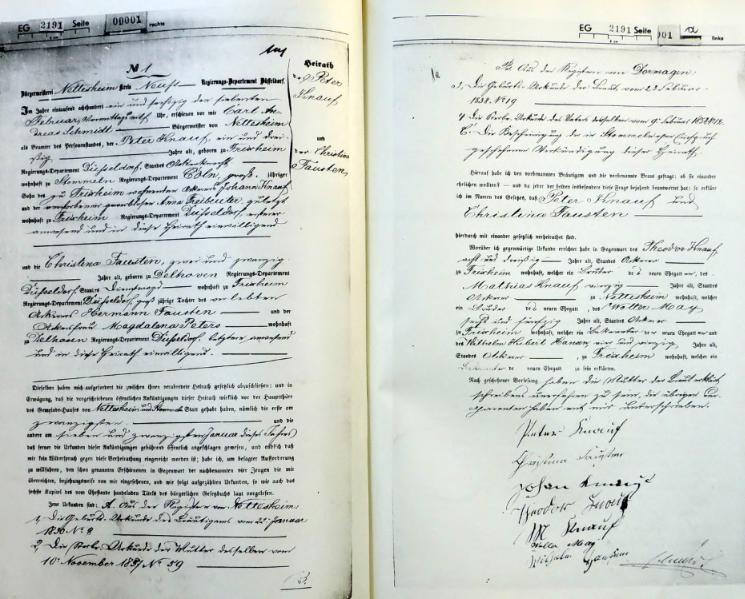 EG 2191 Seite 00001 rechts
№ 1
Heirath
Bürgermeisterei Nettesheim Kreis Neuß Regierungs-Departement Düsseldorf.
Peter
Knauf
Im Jahre eintausend achthundert ein und sechzig den siebenten
Februar Vormittags elf Uhr, erschienen vor mir Carl An-
dreas Schmidt Bürgermeister von Nettesheim
und
als Beamten des Personenstandes, der Peter Knauf, ein und drei-
Christina
Fausten,
ßig Jahre alt, geboren zu Frixheim
Regierungs-Departement Düsseldorf, Standes Ackerknecht
wohnhaft zu Stommeln Regierungs-Departement Cöln, groß jähriger
Sohn des zu Frixheim wohnenden Ackerers Johann Knauf
und der verstorbenen Anna
wohnhaft zu Frixheim Regierungs-Departement Düsseldorf, ersterer
anwesend und in diese Heirath einwilligend
und die Christina Fausten, zwei und zwanzig
Jahre alt, geboren zu Delhoven Regierungs-Departement
Düsseldorf, Standes Dienstmagd wohnhaft zu Frixheim
Regierungs-Departement Düsseldorf, groß jährige Tochter des verlebten
Ackerers Hermann Fausten und der
Ackersfrau Magdalena Peters wohnhaft
zu Delhoven Regierungs-Departement Düsseldorf letztere anwesend
und in diese Heirath einwilligend.
Dieselben haben mich aufgefordert die zwischen ihnen verabredete Heirath gesetzlich abzuschließen; und in
Erwägung, daß die vorgeschriebenen öffentlichen Ankündigungen dieser Heirath wirklich vor der Hauptthüre
des Gemeinde-Hauses von Nettesheim und Stommeln Statt gehabt haben, nämlich die erste am
zwanzigsten und die
andere am sieben und zwanzigsten Januar dieses Jahres
daß ferner die Urkunde dieser Ankündigungen gehörend öffentlich angeschlagen gewesen, und endlich daß
mir kein Widerspruch gegen diese Verheirathung eingereicht worden ist; habe ich, um besagter Aufforderung
zu willfahren, den schon genannten Erschienenen in Gegenwart der nachbenannten vier Zeugen die mir
überreichten, beziehungsweise von mir eingesehenen, und wie folgt aufgezählten Urkunden, so wie auch das
sechste Kapitel des vom Ehestande handelnden Titels des bürgerlichen Gesetzbuchs laut vorgelesen.
Jene Urkunden sind: A. Aus den Registern von Nettesheim
1, Die Geburts-Urkunde des Bräutigams vom 22. Januar
1830 No 8
2, Die Sterbe-Urkunde der Mutter desselben vom
10. November 1857 No 59
EG 2191 Seite 001 links
B. Aus den Registern von Dormagen.
3, Die Geburts-Urkunde der Braut vom 23 Februar
1838. No 19
4 Die Sterbe-Urkunde des Vaters derselben vom 9. Februar
C. Die Bescheinigung der in Stommeln
geschehenen Verkündigung dieser Heirath.
Hierauf habe ich den vorbenannten Bräutigam und die vorbenannte Braut gefragt: ob sie einander
ehelichen wollten? – und da jeder der beiden insbesondere diese Frage bejahend beantwortet hat: so erkläre
ich im Namen des Gesetzes, daß Peter Knauf und
Christina Fausten
hierdurch mit einander gesetzlich verheirathet sind.
Worüber ich gegenwärtige Urkunde errichtet habe in Gegenwart des Theodor Knauf,
acht und dreißig Jahre alt, Standes Ackerer
zu Frixheim wohnhaft, welcher ein Bruder der neuen Ehegatten, des
Mathias Knauf vierzig Jahre alt, Standes
Ackerer zu Nettesheim wohnhaft, welcher
ein Bruder der neuen Ehegatten, des Wolter May
sechs und fünfzig Jahre alt, Standes Ackerer
zu Frixheim wohnhaft, welcher ein Bekannter der neuen Ehegatten und
des Wilhelm Hubert Hansen, ein und vierzig Jahre alt,
Standes Ackerer, zu Frixheim wohnhaft, welcher ein
Bekannter der neuen Ehegatten zu sein erklären.
Nach geschehener Vorlesung haben die Mutter der Braut erklärt
schreibens unerfahren zu sein, die übrigen Com-
parenten haben mit mir unterschrieben.
Peter Knauf
Christina Fausten
Johan Knauf
Theodor Knauf
M Knauf
Wolter May
Wilhelm Hansen
Schmidt